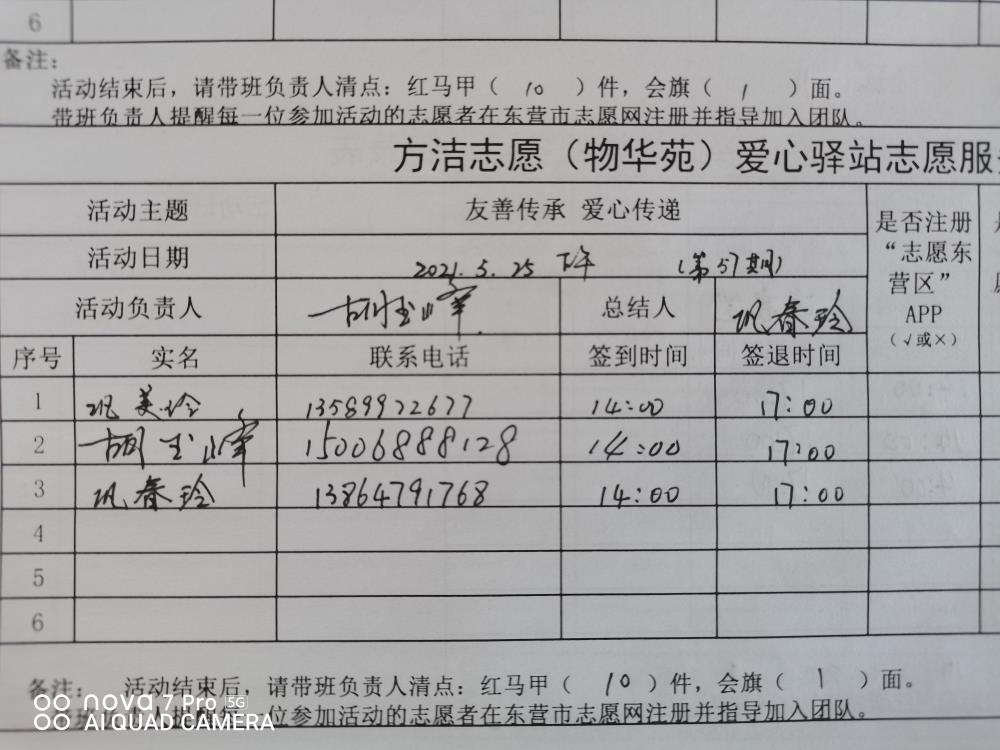 6
备注：
活动结束后，请带班负责人清点：红马甲（ 10 ）件，会旗（ 1 ）面。
带班负责人提醒每一位参加活动的志愿者在东营市志愿网注册并指导加入团队。
方洁志愿（物华苑）爱心驿站志愿服
活动主题 友善传承 爱心传递 是否注册“志愿东营区”APP（√或×）
活动日期 2021.5.25 下午 （第57期）
活动负责人 胡玉峰 总结人 巩春玲
序号 实名 联系电话 签到时间 签退时间
1 巩美玲 13589972677 14:00 17:00
2 胡玉峰 15006888128 14:00 17:00
3 巩春玲 13864791768 14:00 17:00
4
5
6
备注： 活动结束后，请带班负责人清点：红马甲（ 10 ）件，会旗（ 1 ）面。
带班负责人提醒每一位参加活动的志愿者在东营市志愿网注册并指导加入团队。
nova 7 Pro 5G
AI QUAD CAMERA